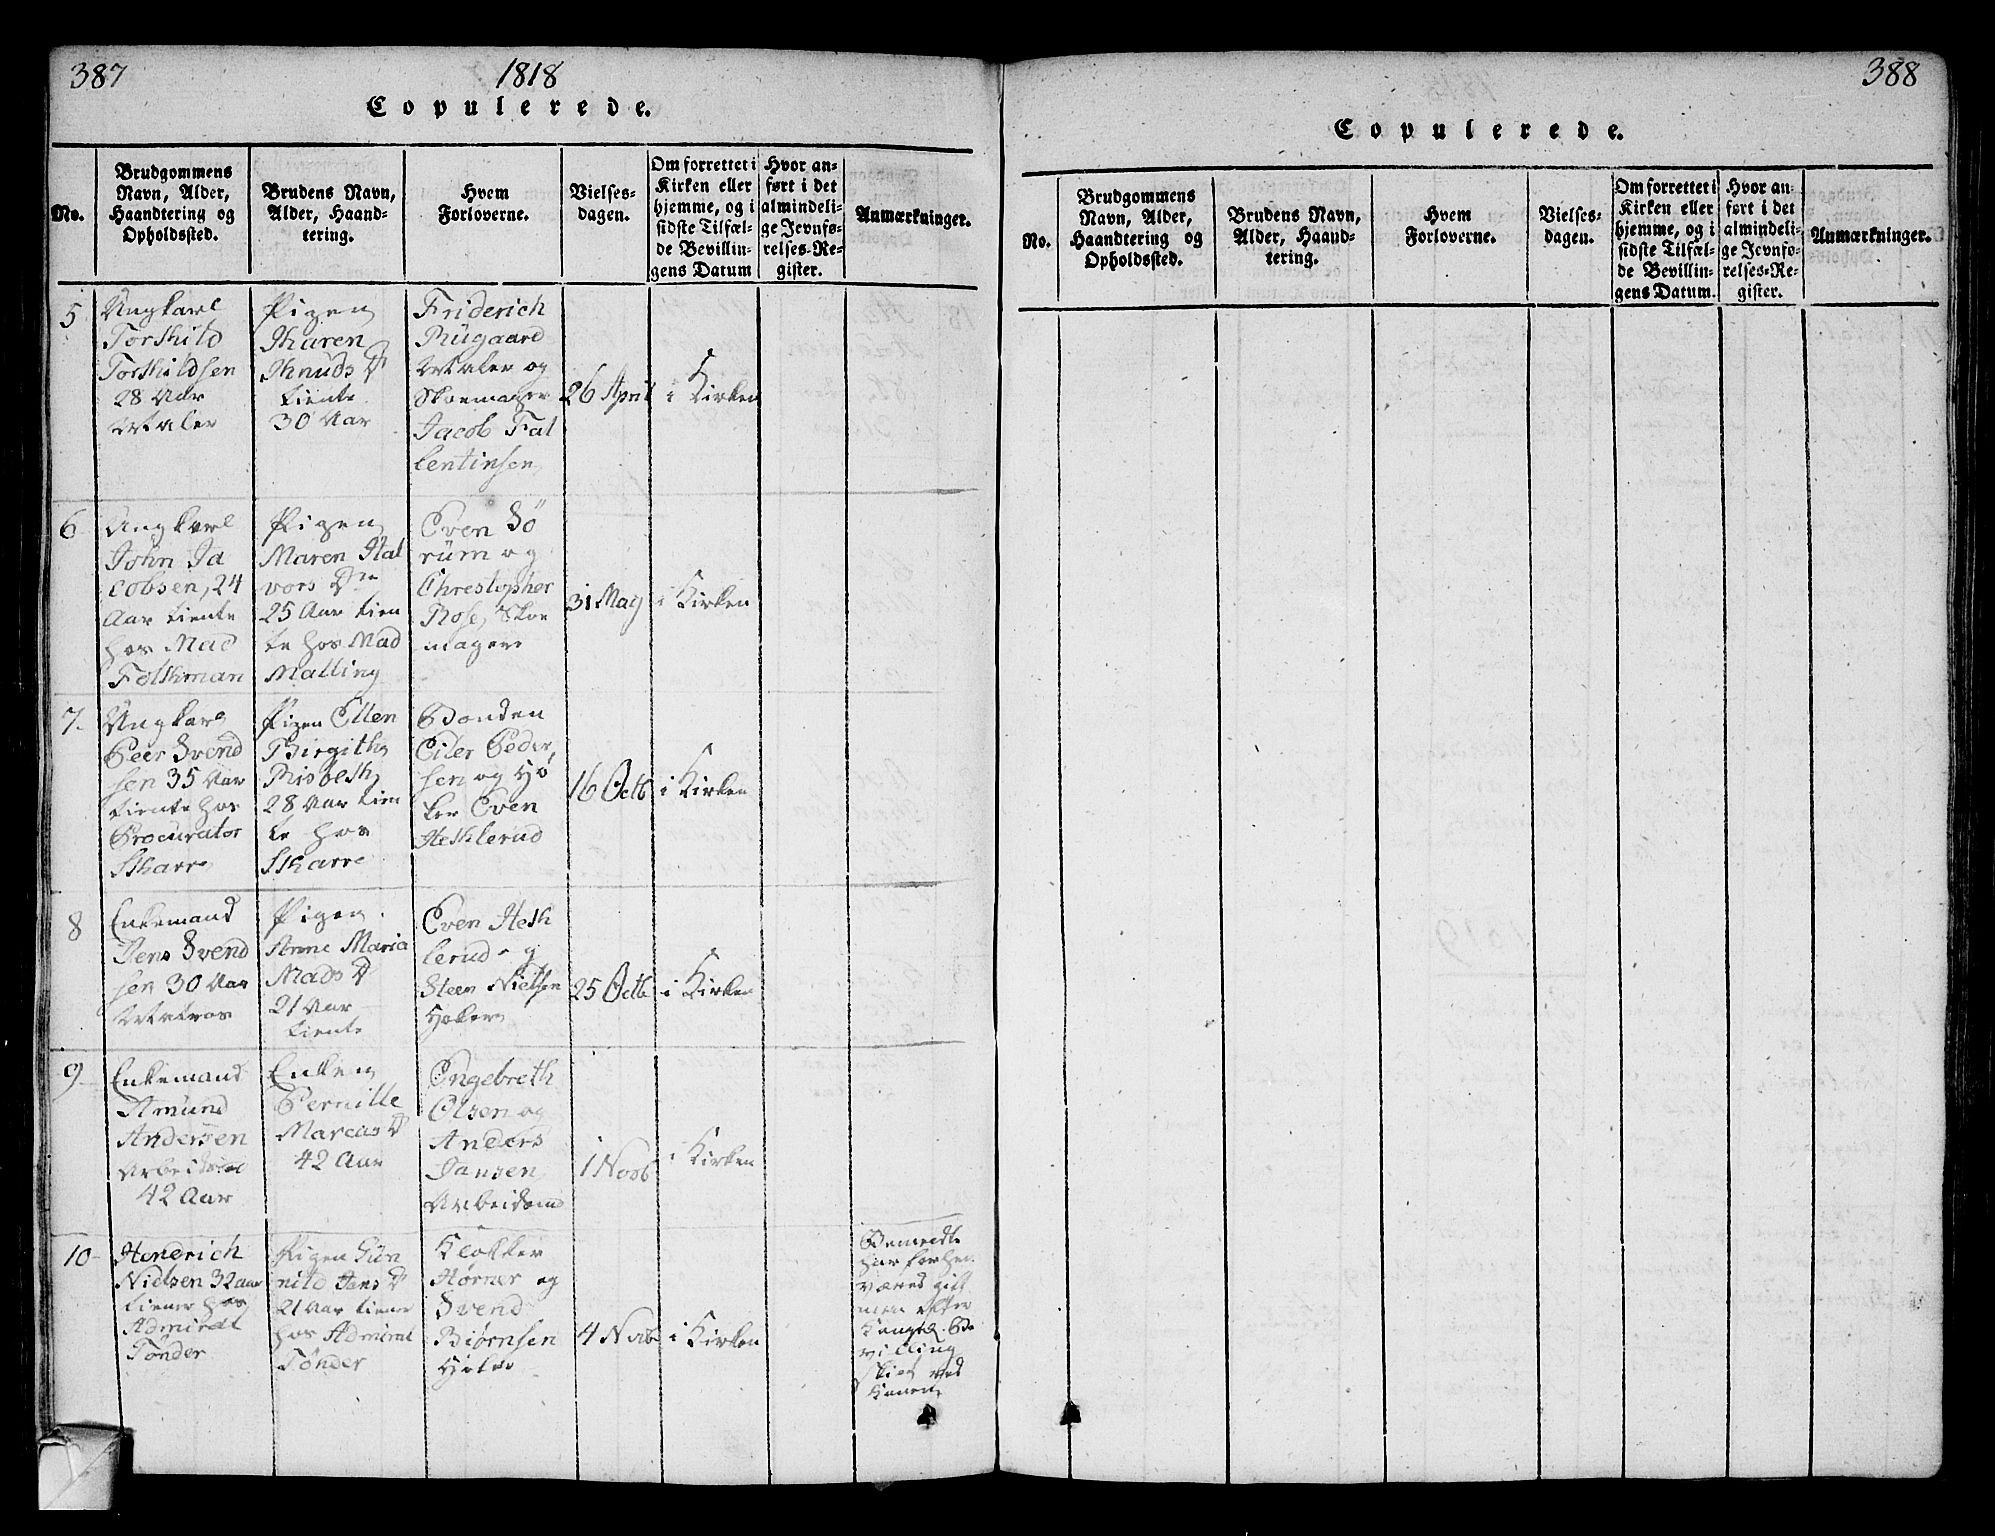 387
1818
Copulerede.
No.
Brudgommens
Navn, Alder,
Haandtering og
Opholdssted.
Brudens Navn,
Alder, Haand-
tering.
Hvem
Forloverne.
Vielses-
dagen.
Om forrettet i
Kirken eller
hjemme, og i
sidste Tilfæl-
de Bevillin-
gens Datum
Hvor an-
ført i det
almindeli-
ge Jevnfø-
relses-Re-
gister.
Anmærkninger.
5
Ungkarl
Torkild
Torkildsen
28 Aar
Maler
Pigen
Karen
Knuds D
tiente
30 Aar
Friderich
Rügaard
Maler og
Skoemager
Jacob Fal
lentinsen
26 April
i Kirken
6
Ungkarl
John Ja
cobsen, 24
Aar tiente
hos Mad
Folkman
Pigen
Maren Hal
vors D
25 Aar tien
te hos Mad
Malling
Even Sö
rüm og
Christopher
Rose, Skoe
magere
31 May
i Kirken
7
Ungkarl
Peer Svend
sen 35 Aar
tiente hos
Procurator
Skarre
Pigen Ellen
Birgith
Risbeth
28 Aar tien
te hos
Skarre
Bonden
Eiler Peder
sen og Hø
ker Even
Heklerud
16 Octb
i Kirken
8
Enkemand
Jens Svend
sen 30 Aar
Matros
Pigen
Anne Maria
Mads D
21 Aar
tiente
Even Hek
lerud og
Steen Nielsen
Høkere
25 Octb
i Kirken
9
Enkemand
Amund
Andersen
Arbeidsm
42 Aar
Enken
Pernille
Marcus D
42 Aar
Engebreth
Olsen og
Anders
Jansen
Arbeidsmd
1 Novb
i Kirken
10
Henerich
Nielsen 32 aar
tiener hos
Admiral
Tönder
Pigen Gün
nild Jens D
21 Aar tiener
hos Admiral
Tönder
Klokker
Hørner og
Svend
Biørnsen
Høker
4 Novb
i Kirken
Bemeldte
har forhen
været gift
men efter
Kongel. Be
villing
skiet ved
Konen
388
Copulerede.
No.
Brudgommens
Navn, Alder,
Haandtering og
Opholdssted.
Brudens Navn,
Alder, Haand-
tering.
Hvem
Forloverne.
Vielses-
dagen.
Om forrettet i
Kirken eller
hjemme, og i
sidste Tilfæl-
de Bevillin-
gens Datum.
Hvor an-
ført i det
almindeli-
ge Jevnfø-
relses-Re-
gister.
Anmærkninger.